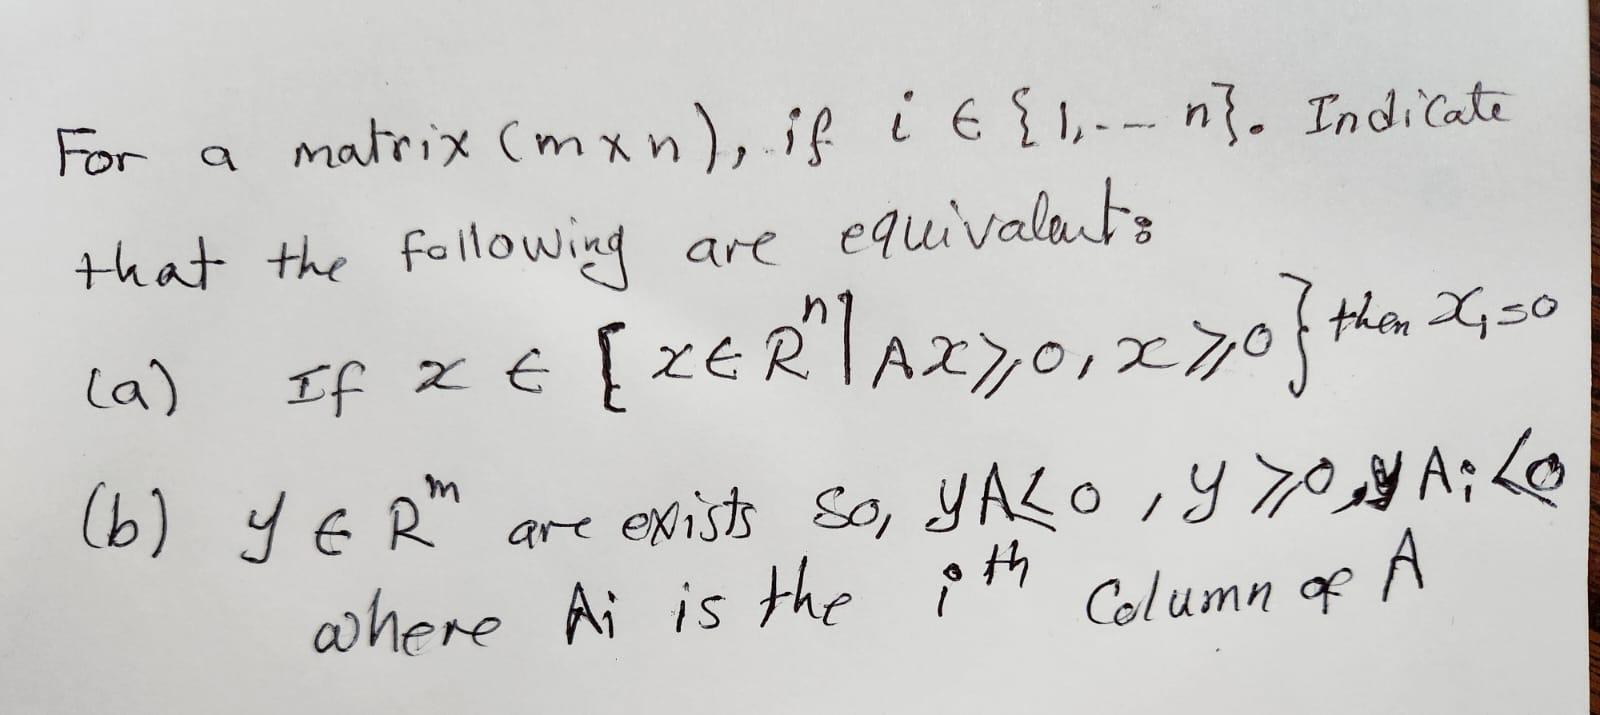 For a matrix (m x n), if i ∈ {1,-- n}. Indicate
that the following are equivalent:
(a) If x ∈ { x ∈ Rⁿ | Ax ≥ 0, x ≥ 0 } then xᵢ = 0
(b) y ∈ Rᵐ are exists so, yA ≤ 0, y ≥ 0, yAᵢ < 0
where Ai is the iᵗʰ Column of A